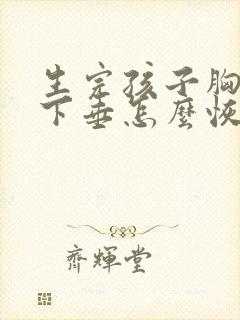 生完孩子胸
下垂怎麼恢
齊輝堂